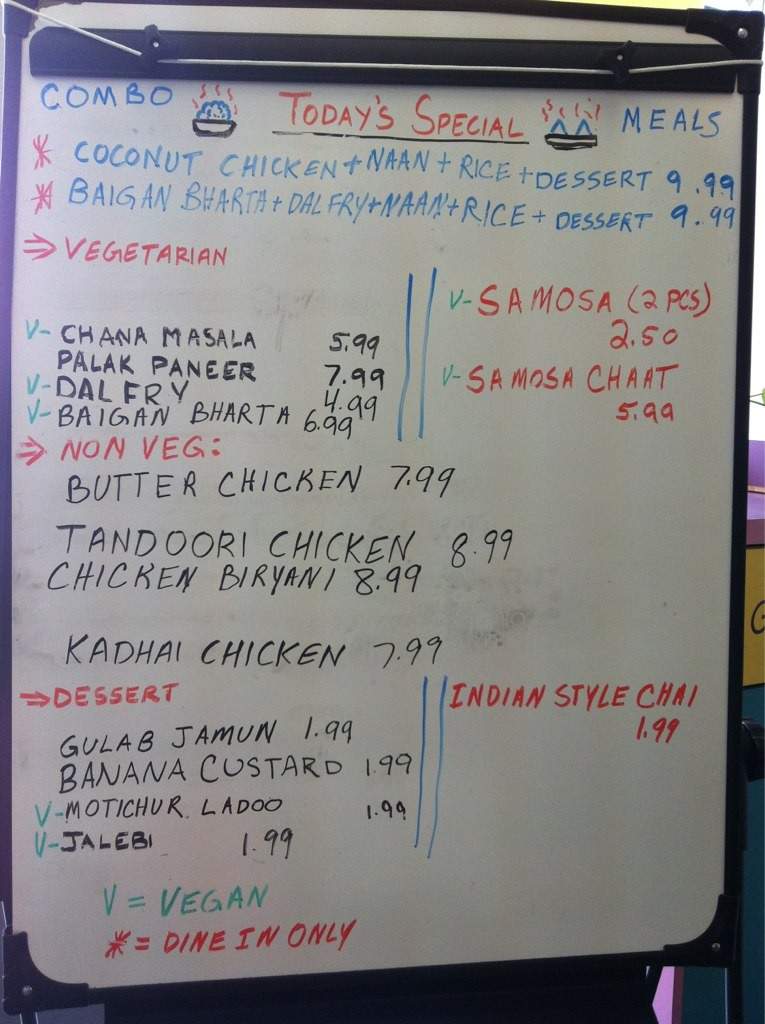 COMBO TODAY'S SPECIAL MEALS
* COCONUT CHICKEN + NAAN + RICE + DESSERT 9.99
* BAIGAN BHARTA + DAL FRY + NAAN + RICE + DESSERT 9.99
⇒ VEGETARIAN
V- CHANA MASALA 5.99
PALAK PANEER 7.99
V- DAL FRY 4.99
V- BAIGAN BHARTA 6.99
V- SAMOSA (2 PCS)
2.50
V- SAMOSA CHAAT
5.99
⇒ NON VEG:
BUTTER CHICKEN 7.99
TANDOORI CHICKEN 8.99
CHICKEN BIRYANI 8.99
KADHAI CHICKEN 7.99
⇒ DESSERT
GULAB JAMUN 1.99
BANANA CUSTARD 1.99
V- MOTICHUR LADOO 1.99
V- JALEBI 1.99
INDIAN STYLE CHAI
1.99
V = VEGAN
* = DINE IN ONLY